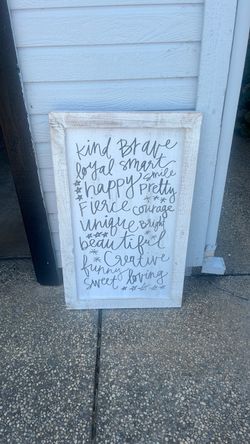 kind Brave
loyal smart
happy smile
pretty
Fierce courage
unique Bright
beautiful
Creative
funny
sweet loving